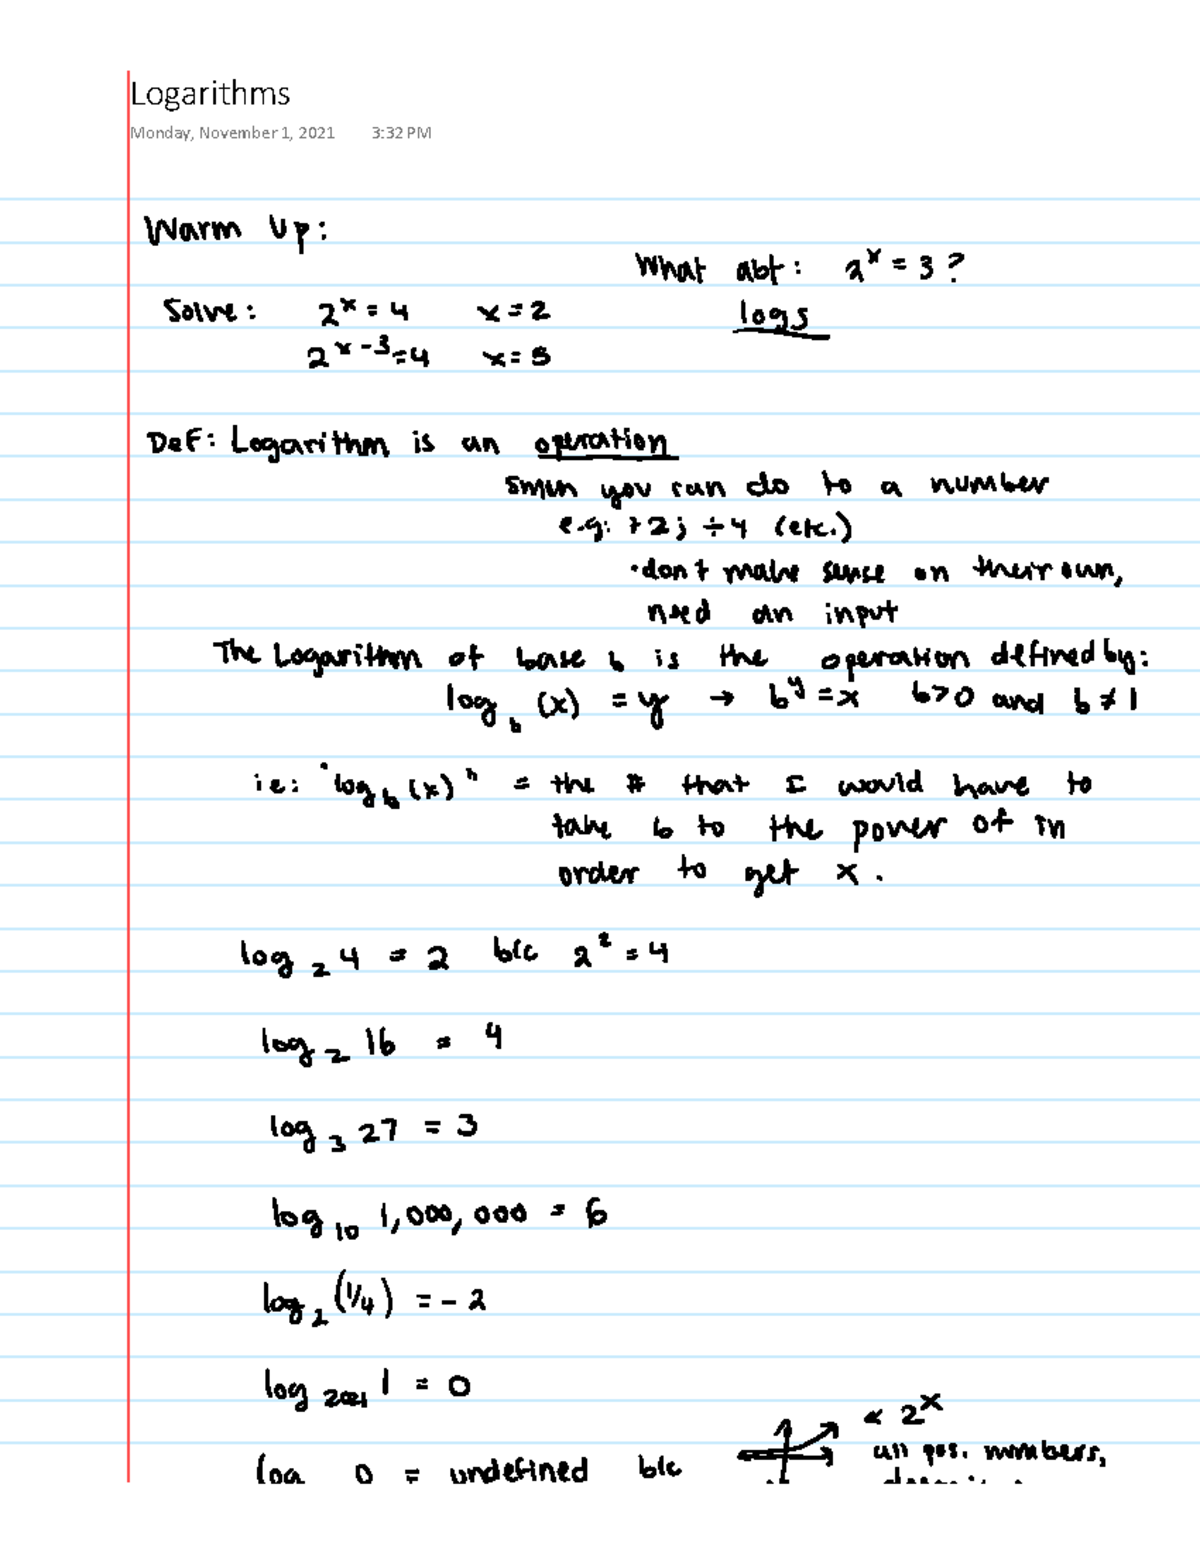 Logarithms
Monday, November 1, 2021 3:32 PM
Warm Up:
What abt: 2^x = 3?
Solve: 2^x = 4 x = 2
logs
2^x-3 = 4 x = 5
Def: Logarithm is an operation
smth you can do to a number
e.g: +2; ÷4 (etc.)
·don't make sense on their own,
need an input
The Logarithm of base b is the operation defined by:
log_b (x) = y → b^y = x b>0 and b ≠ 1
ie: "log_b (x)" = the # that I would have to
take b to the power of in
order to get x.
log_2 4 = 2 b/c 2^2 = 4
log_2 16 = 4
log_3 27 = 3
log_10 1,000,000 = 6
log_2 (1/4) = -2
log_2021 1 = 0
← 2^x
all pos. numbers,
log 0 = undefined b/c